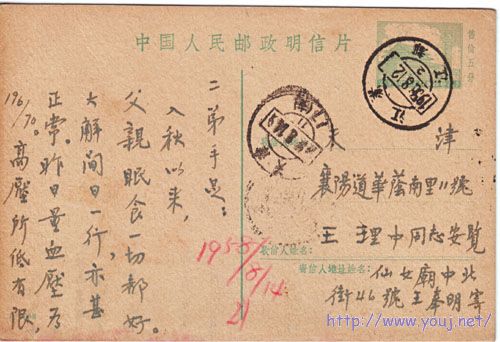 中国人民邮政明信片
售价五分
天津
襄陽道華蔭南里11號
收信人姓名：
王理中同志安覽
寄信人地址姓名：
仙女廟中北
街46號王奉明寄
二弟手足：
入秋以来，
父親眠食一切都好。
大解間日一行，亦甚
正常。昨日量血壓為
196/70。高壓所低有限，
1955/
8/14
http://www.youj.net/